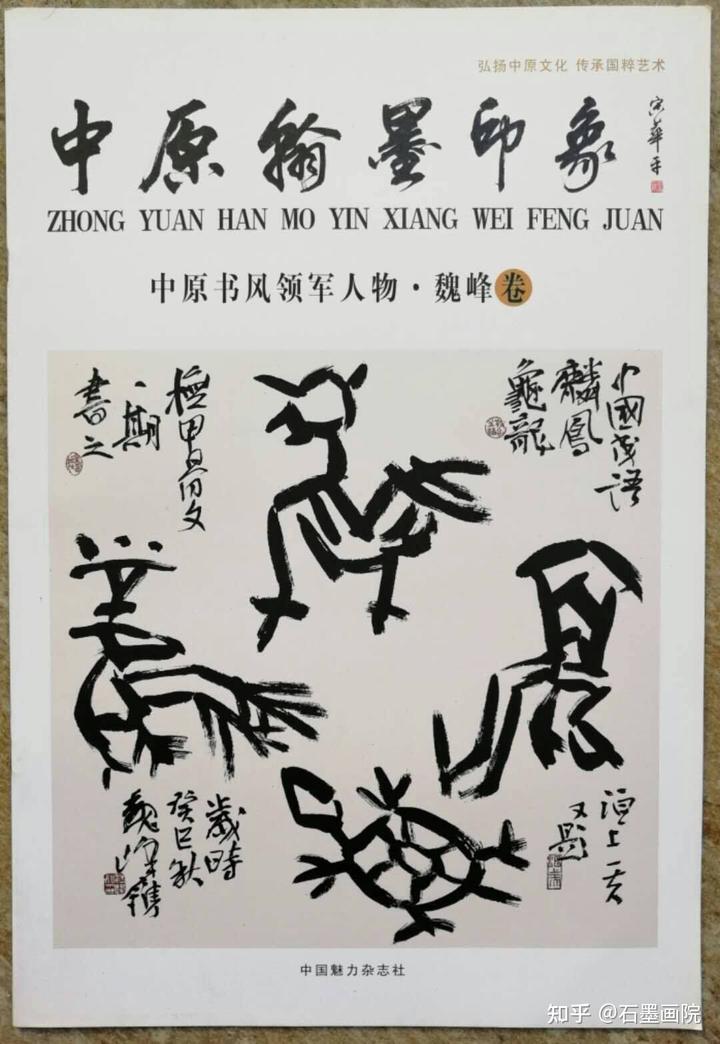 弘扬中原文化 传承国粹艺术
中原翰墨印象
ZHONG YUAN HAN MO YIN XIANG WEI FENG JUAN
中原书风领军人物·魏峰卷
中國成语
麟鳳
龜龍
橅甲骨文
一期
書之
歲時
癸巳秋
魏峰鐫
又題
中国魅力杂志社
知乎 @石墨画院